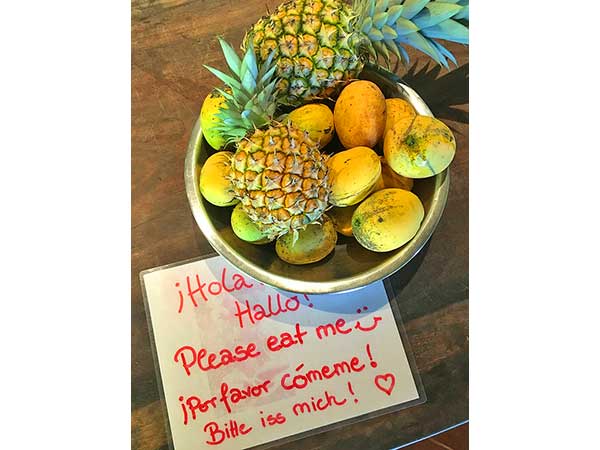 ¡Hola
Hallo!
Please eat me
¡Por favor cómeme!
Bitte iss mich!